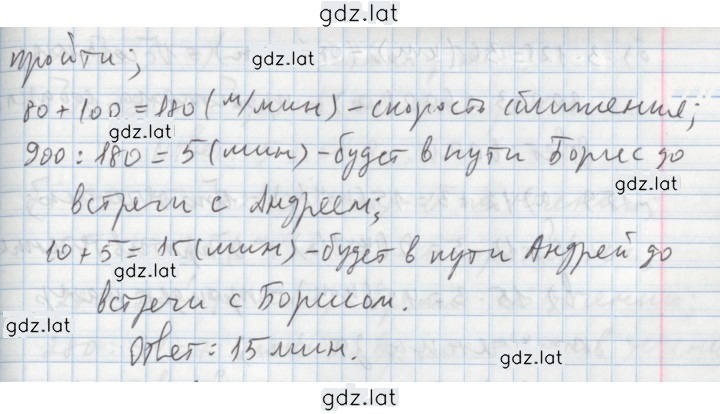 gdz.lat
пройти;
gdz.lat
80 + 100 = 180 (м/мин) – скорость сближения;
gdz.lat
900 : 180 = 5 (мин) – будет в пути Борис до
gdz.lat
встречи с Андреем;
10 + 5 = 15 (мин) – будет в пути Андрей до
gdz.lat
встречи с Борисом.
gdz.lat
gdz.lat
Ответ: 15 мин.
gdz.lat
gdz.lat